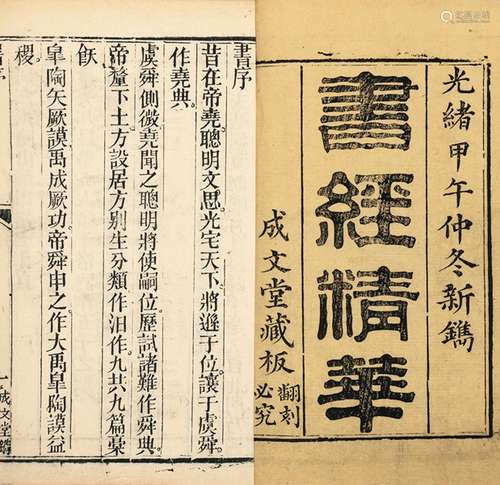 光緒甲午仲冬新鐫
書經精華
成文堂藏板
翻刻
必究
書序
昔在帝堯聰明文思光宅天下將遜于位讓于虞舜
作堯典
虞舜側微堯聞之聰明將使嗣位歷試諸難作舜典
帝釐下土方設居方別生分類作汨作九共九篇槀
飫
皐陶矢厥謨禹成厥功帝舜申之作大禹皐陶謨益
稷
書序
一
成文堂鐫